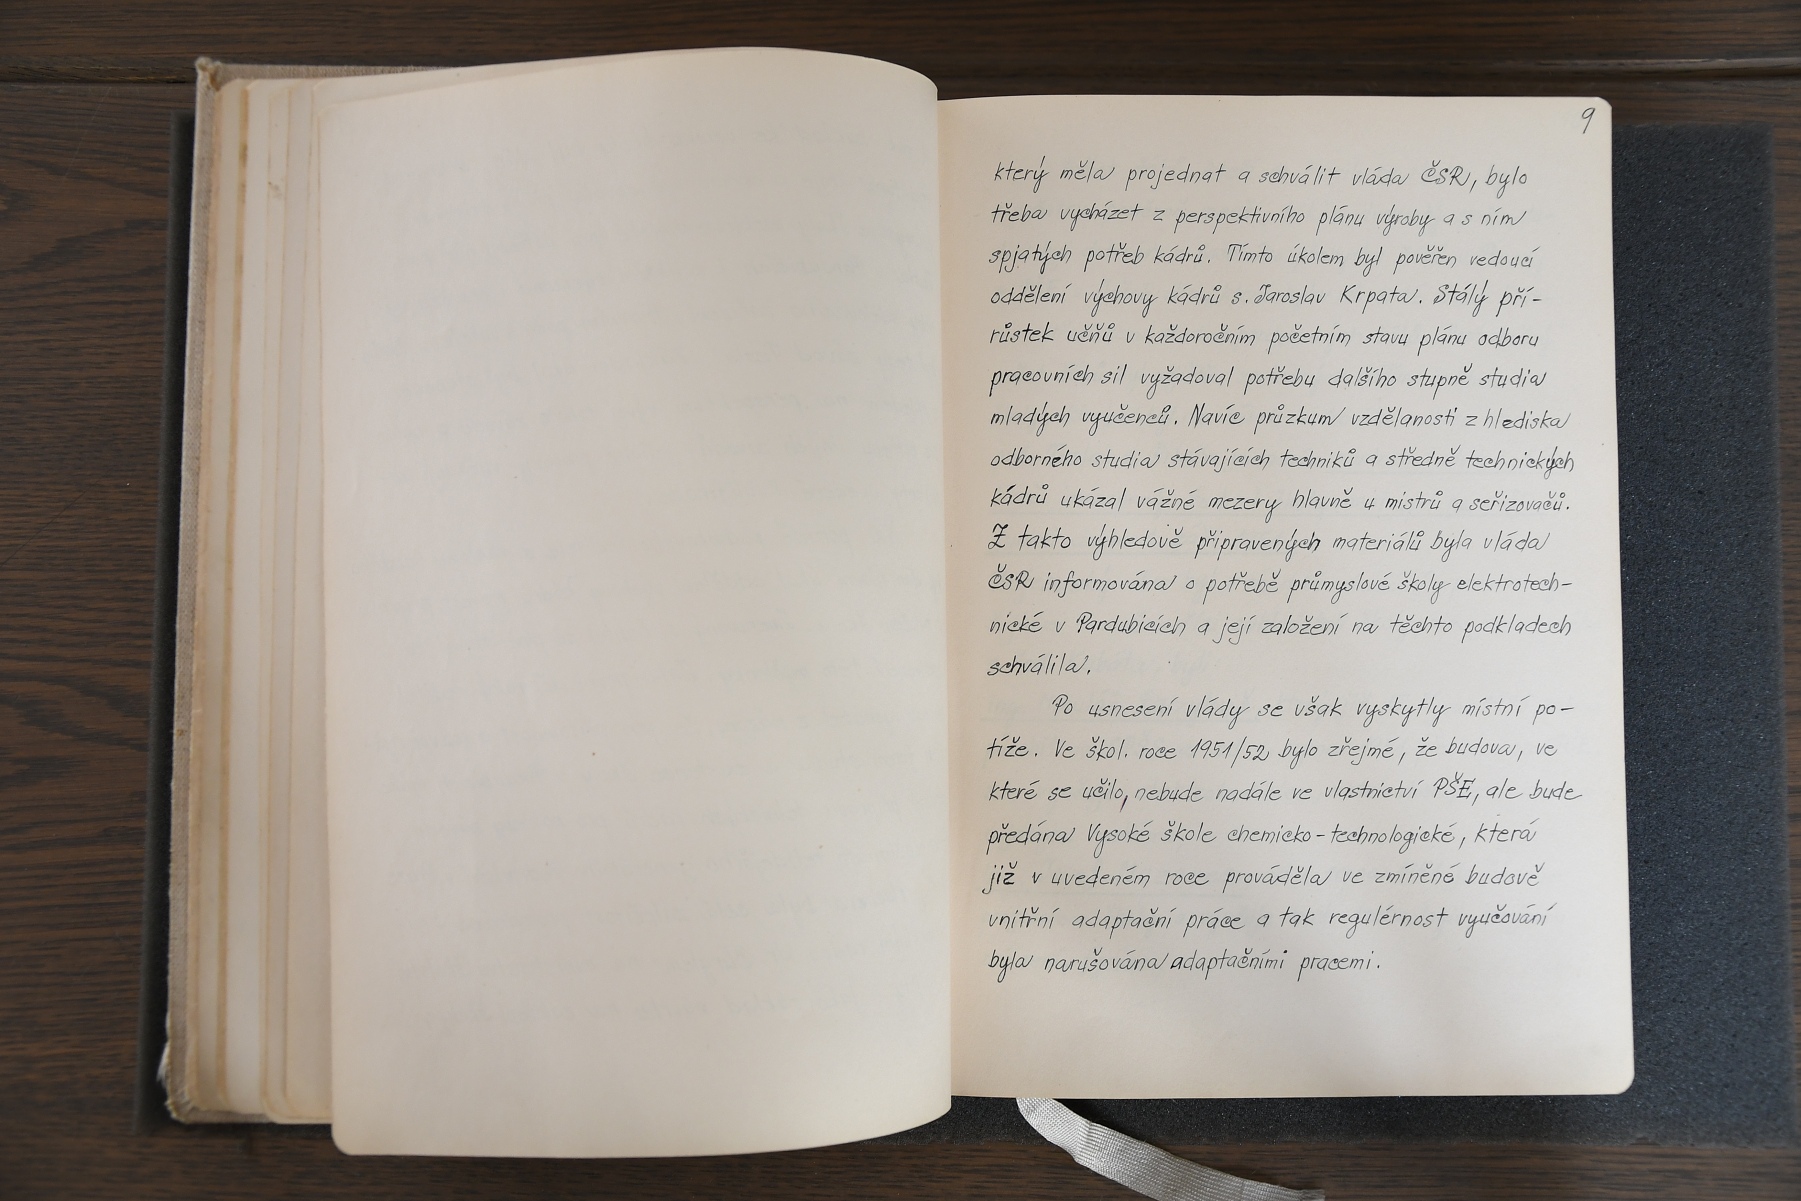 9
který měla projednat a schválit vláda ČSR, bylo
třeba vycházet z perspektivního plánu výroby a s ním
spjatých potřeb kádrů. Tímto úkolem byl pověřen vedoucí
oddělení výchovy kádrů s. Jaroslav Krpata. Stálý pří-
růstek učňů v každoročním početním stavu plánu odboru
pracovních sil vyžadoval potřebu dalšího stupně studia
mladých vyučenců. Navíc průzkum vzdělanosti z hlediska
odborného studia stávajících techniků a středně technických
kádrů ukázal vážné mezery hlavně u mistrů a seřizovačů.
Z takto výhledově připravených materiálů byla vláda
ČSR informována o potřebě průmyslové školy elektrotech-
nické v Pardubicích a její založení na těchto podkladech
schválila.
Po usnesení vlády se však vyskytly místní po-
tíže. Ve škol. roce 1951/52 bylo zřejmé, že budova, ve
které se učilo, nebude nadále ve vlastnictví PŠE, ale bude
předána Vysoké škole chemicko-technologické, která
již v uvedeném roce prováděla ve zmíněné budově
vnitřní adaptační práce a tak regulérnost vyučování
byla narušována adaptačními pracemi.